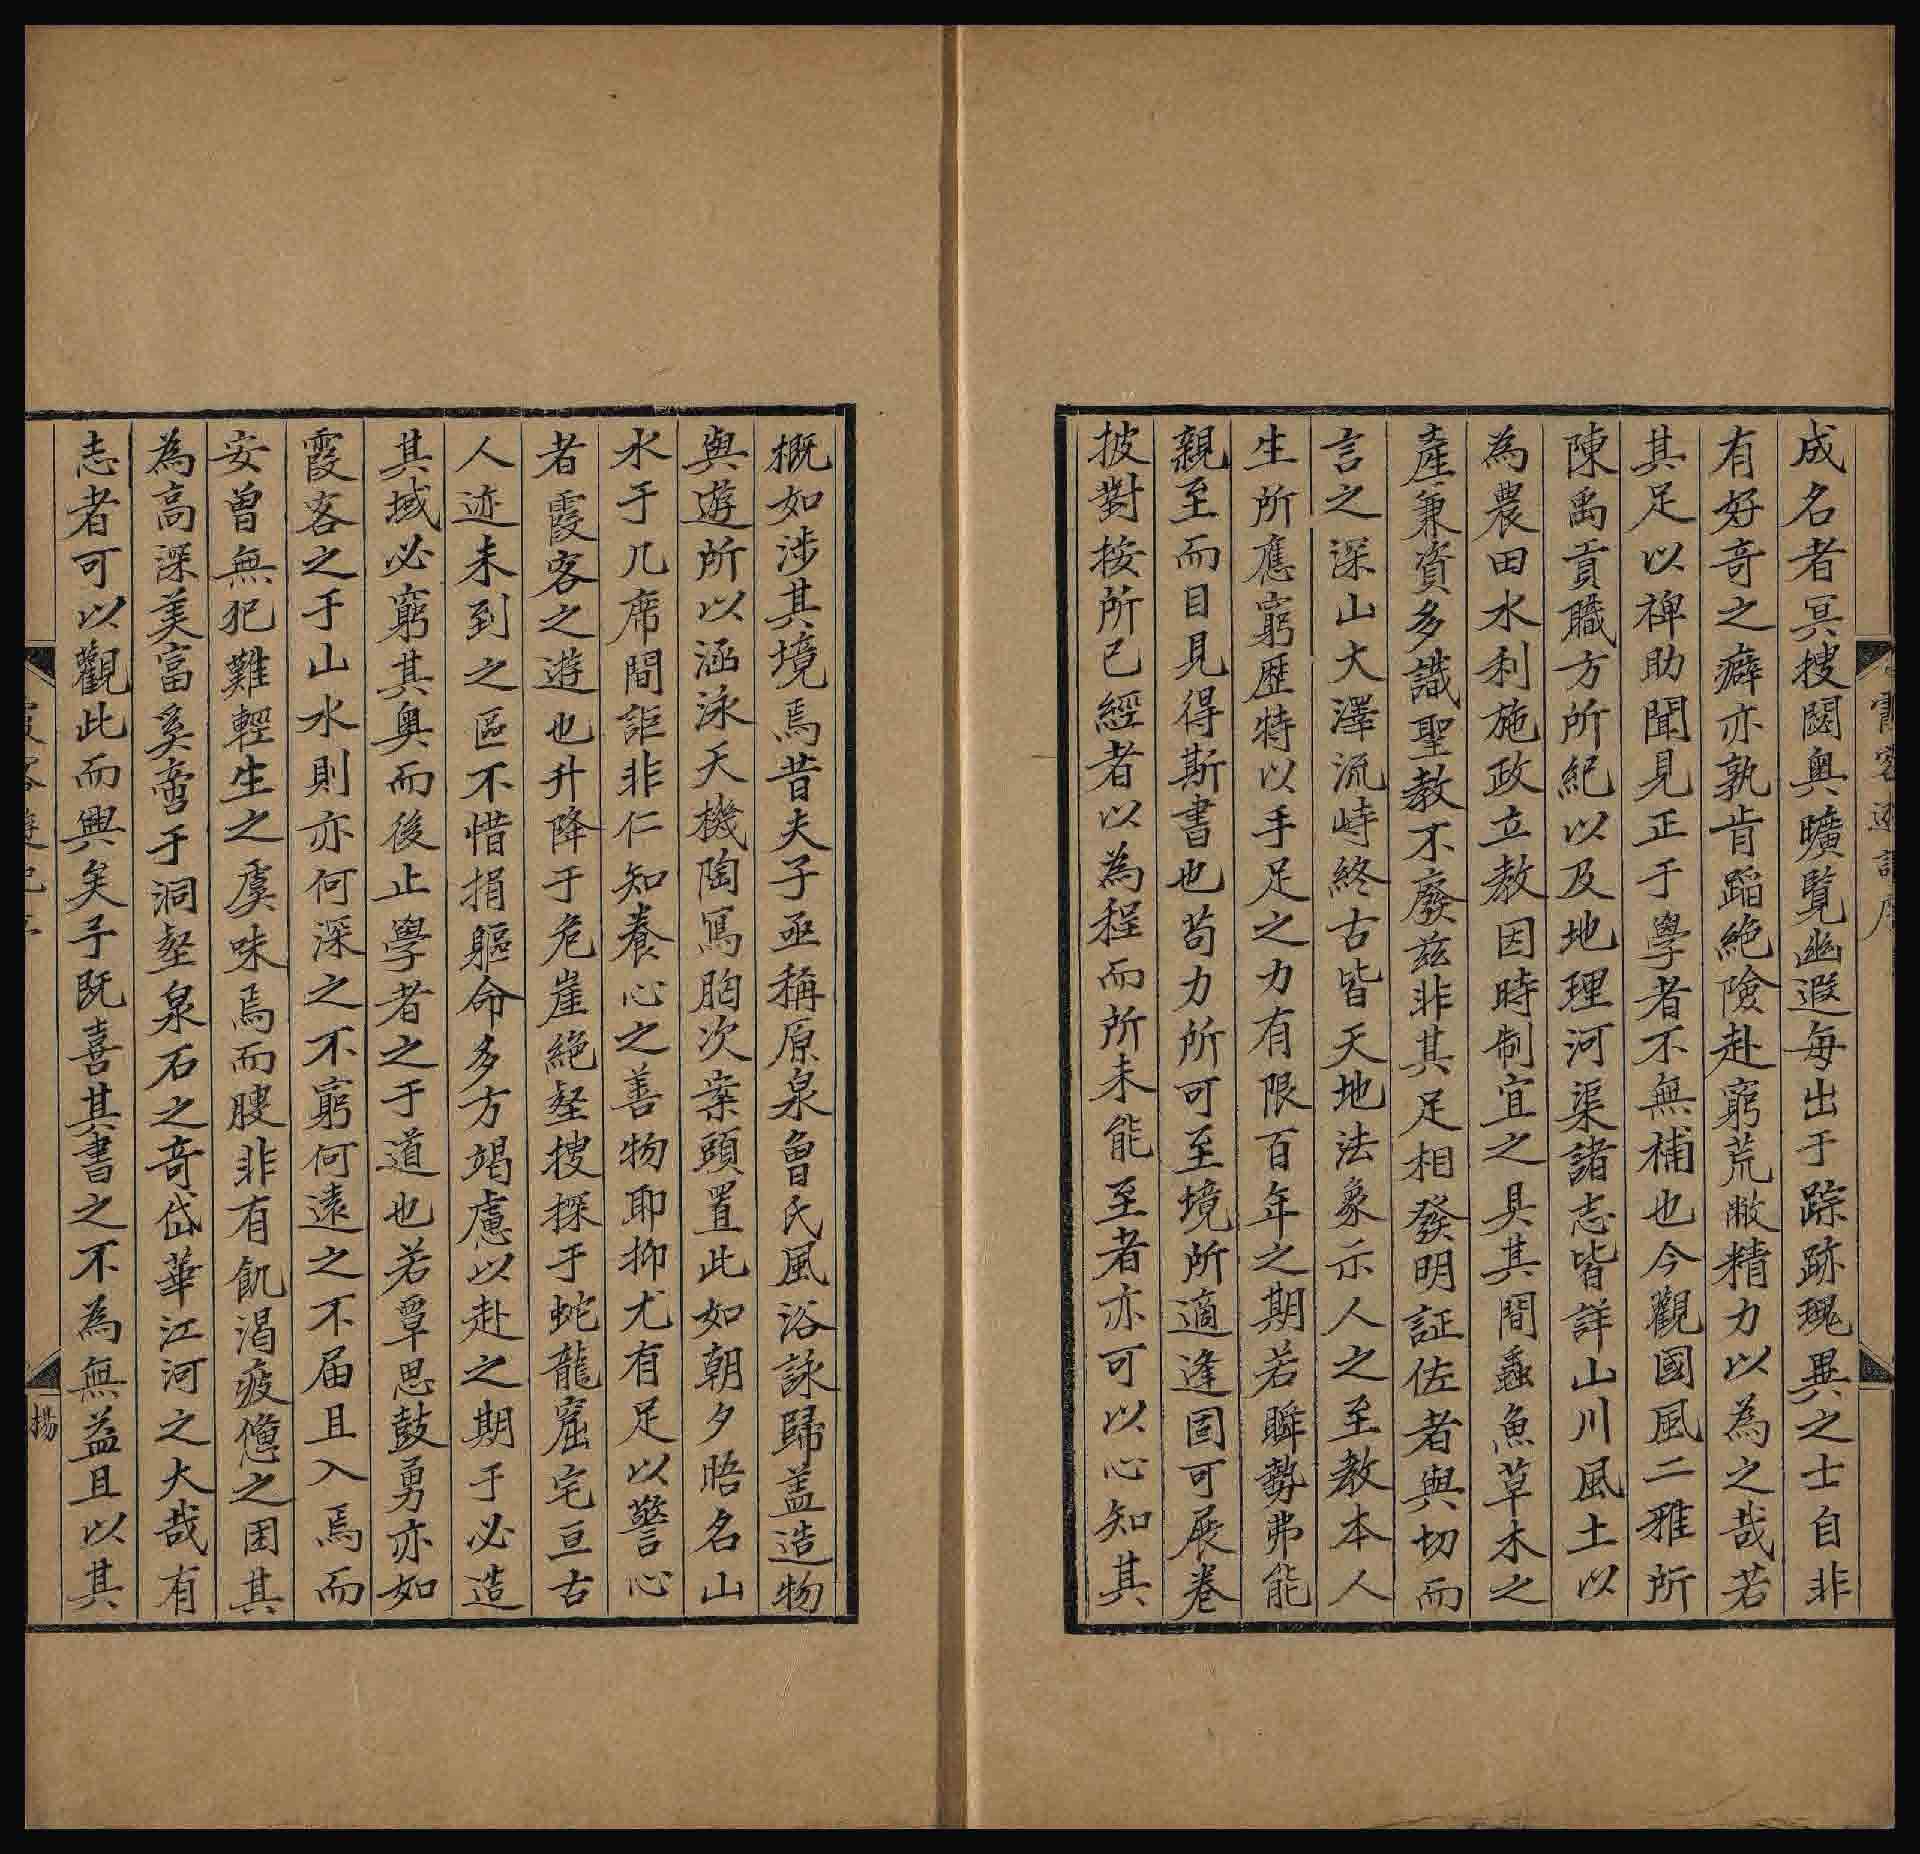 霞客遊記序
成名者冥搜閟奥曠覽幽遐每出于踪跡瑰異之士自非
有好竒之癖亦孰肯蹈絶險赴窮荒敝精力以為之哉若
其足以裨助聞見正于學者不無補也今觀國風二雅所
陳禹貢職方所紀以及地理河渠諸志皆詳山川風土以
為農田水利施政立教因時制宜之具其間蟲魚草木之
產兼資多識聖教不廢兹非其足相發明証佐者與切而
言之深山大澤流峙終古皆天地法象示人之至教本人
生所應窮歷特以手足之力有限百年之期若瞬勢弗能
親至而目見得斯書也茍力所可至境所適逢固可展卷
披對按所已經者以為程而所未能至者亦可以心知其
概如涉其境焉昔夫子亟稱原泉魯氏風浴詠歸盖造物
與遊所以涵泳天機陶寫胸次案頭置此如朝夕晤名山
水于几席間詎非仁知養心之善物耶抑尤有足以警心
者霞客之遊也升降于危崖絶壑搜探于蛇龍窟宅亘古
人迹未到之區不惜捐軀命多方竭慮以赴之期于必造
其域必窮其奥而後止學者之于道也若覃思鼓勇亦如
霞客之于山水則亦何深之不窮何遠之不届且入焉而
安曾無犯難輕生之虞味焉而腴非有飢渴疲憊之困其
為高深美富奚啻于洞壑泉石之竒岱華江河之大哉有
志者可以觀此而興矣予既喜其書之不為無益且以其
霞客遊記序
楊